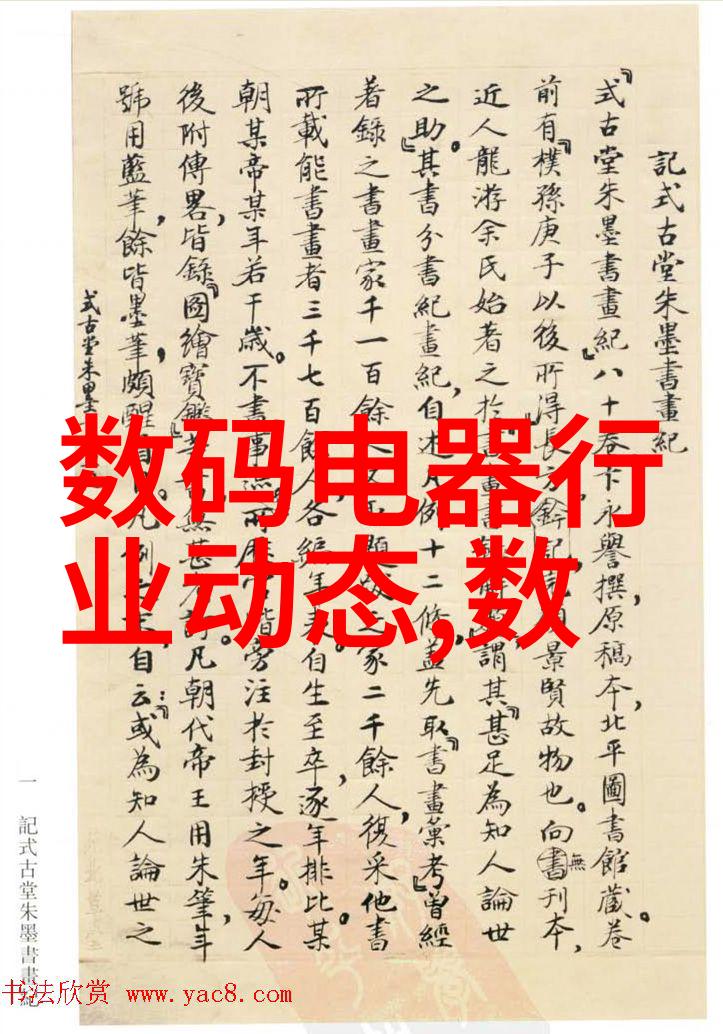 記式古堂朱墨書畫紀
『式古堂朱墨書畫紀』八十卷卞永譽撰,原稿本,北平圖書館藏。卷
前有『樸孫庚子以後所得』長方
景賢故物也。向無書刊本,
近人龍游余氏始著之於
謂其『甚足為知人論世
之助。』其書分書紀畫紀,自述凡例十二條,蓋先取『書畫彙考』曾經
著錄之書畫家千一百餘
二千餘人,後采他書
所載能書畫者三千七百餘人,各編年表。自生至卒,逐年排比。某
朝某帝某年若干歲。不書事
皆旁注於封授之年。每人
後附傳畧,皆錄『圖繪寶鑑』
凡朝代帝王用朱筆,年
號用藍筆,餘皆墨筆,頗醒
自云:『或為知人論世之
式古堂朱墨
一 記式古堂朱墨書畫紀
数码电器行
业动态,数
书法欣赏 www.yac8.com